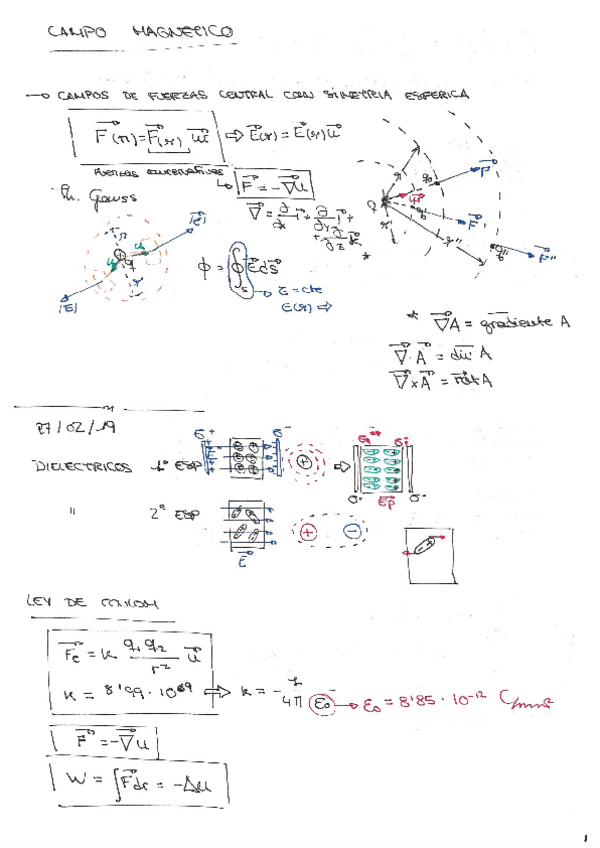 CAMPO MAGNETICO
→ CAMPOS DE FUERZAS CENTRAL CON SIMETRIA ESFERICA
F⃗(r) = F⃗(r) u⃗ ⇒ E⃗(r) = E⃗(r) u⃗
FUERZAS CONSERVATIVAS
F⃗ = -∇⃗U
Th. Gauss
∇⃗ = ∂/∂x i⃗ + ∂/∂y j⃗ + ∂/∂z k⃗ *
|E⃗|
|E⃗|
ϕ = ∮s E⃗ ds⃗
→ r = cte
E(r) ⇒
* ∇⃗A = gradiente A
∇⃗ · A⃗ = div A
∇⃗ x A⃗ = rot A
27/02/19
DIELECTRICOS 1ª ESP
" 2ª ESP
E⃗
LEY DE COULOMB
F⃗e = k q₁ q₂ / r² u⃗
k = 8'99 · 10^9 ⇒ k = - 1 / 4π ε₀ → ε₀ = 8'85 · 10^-12
F⃗ = -∇⃗U
W = ∫F⃗dr = -ΔU
1